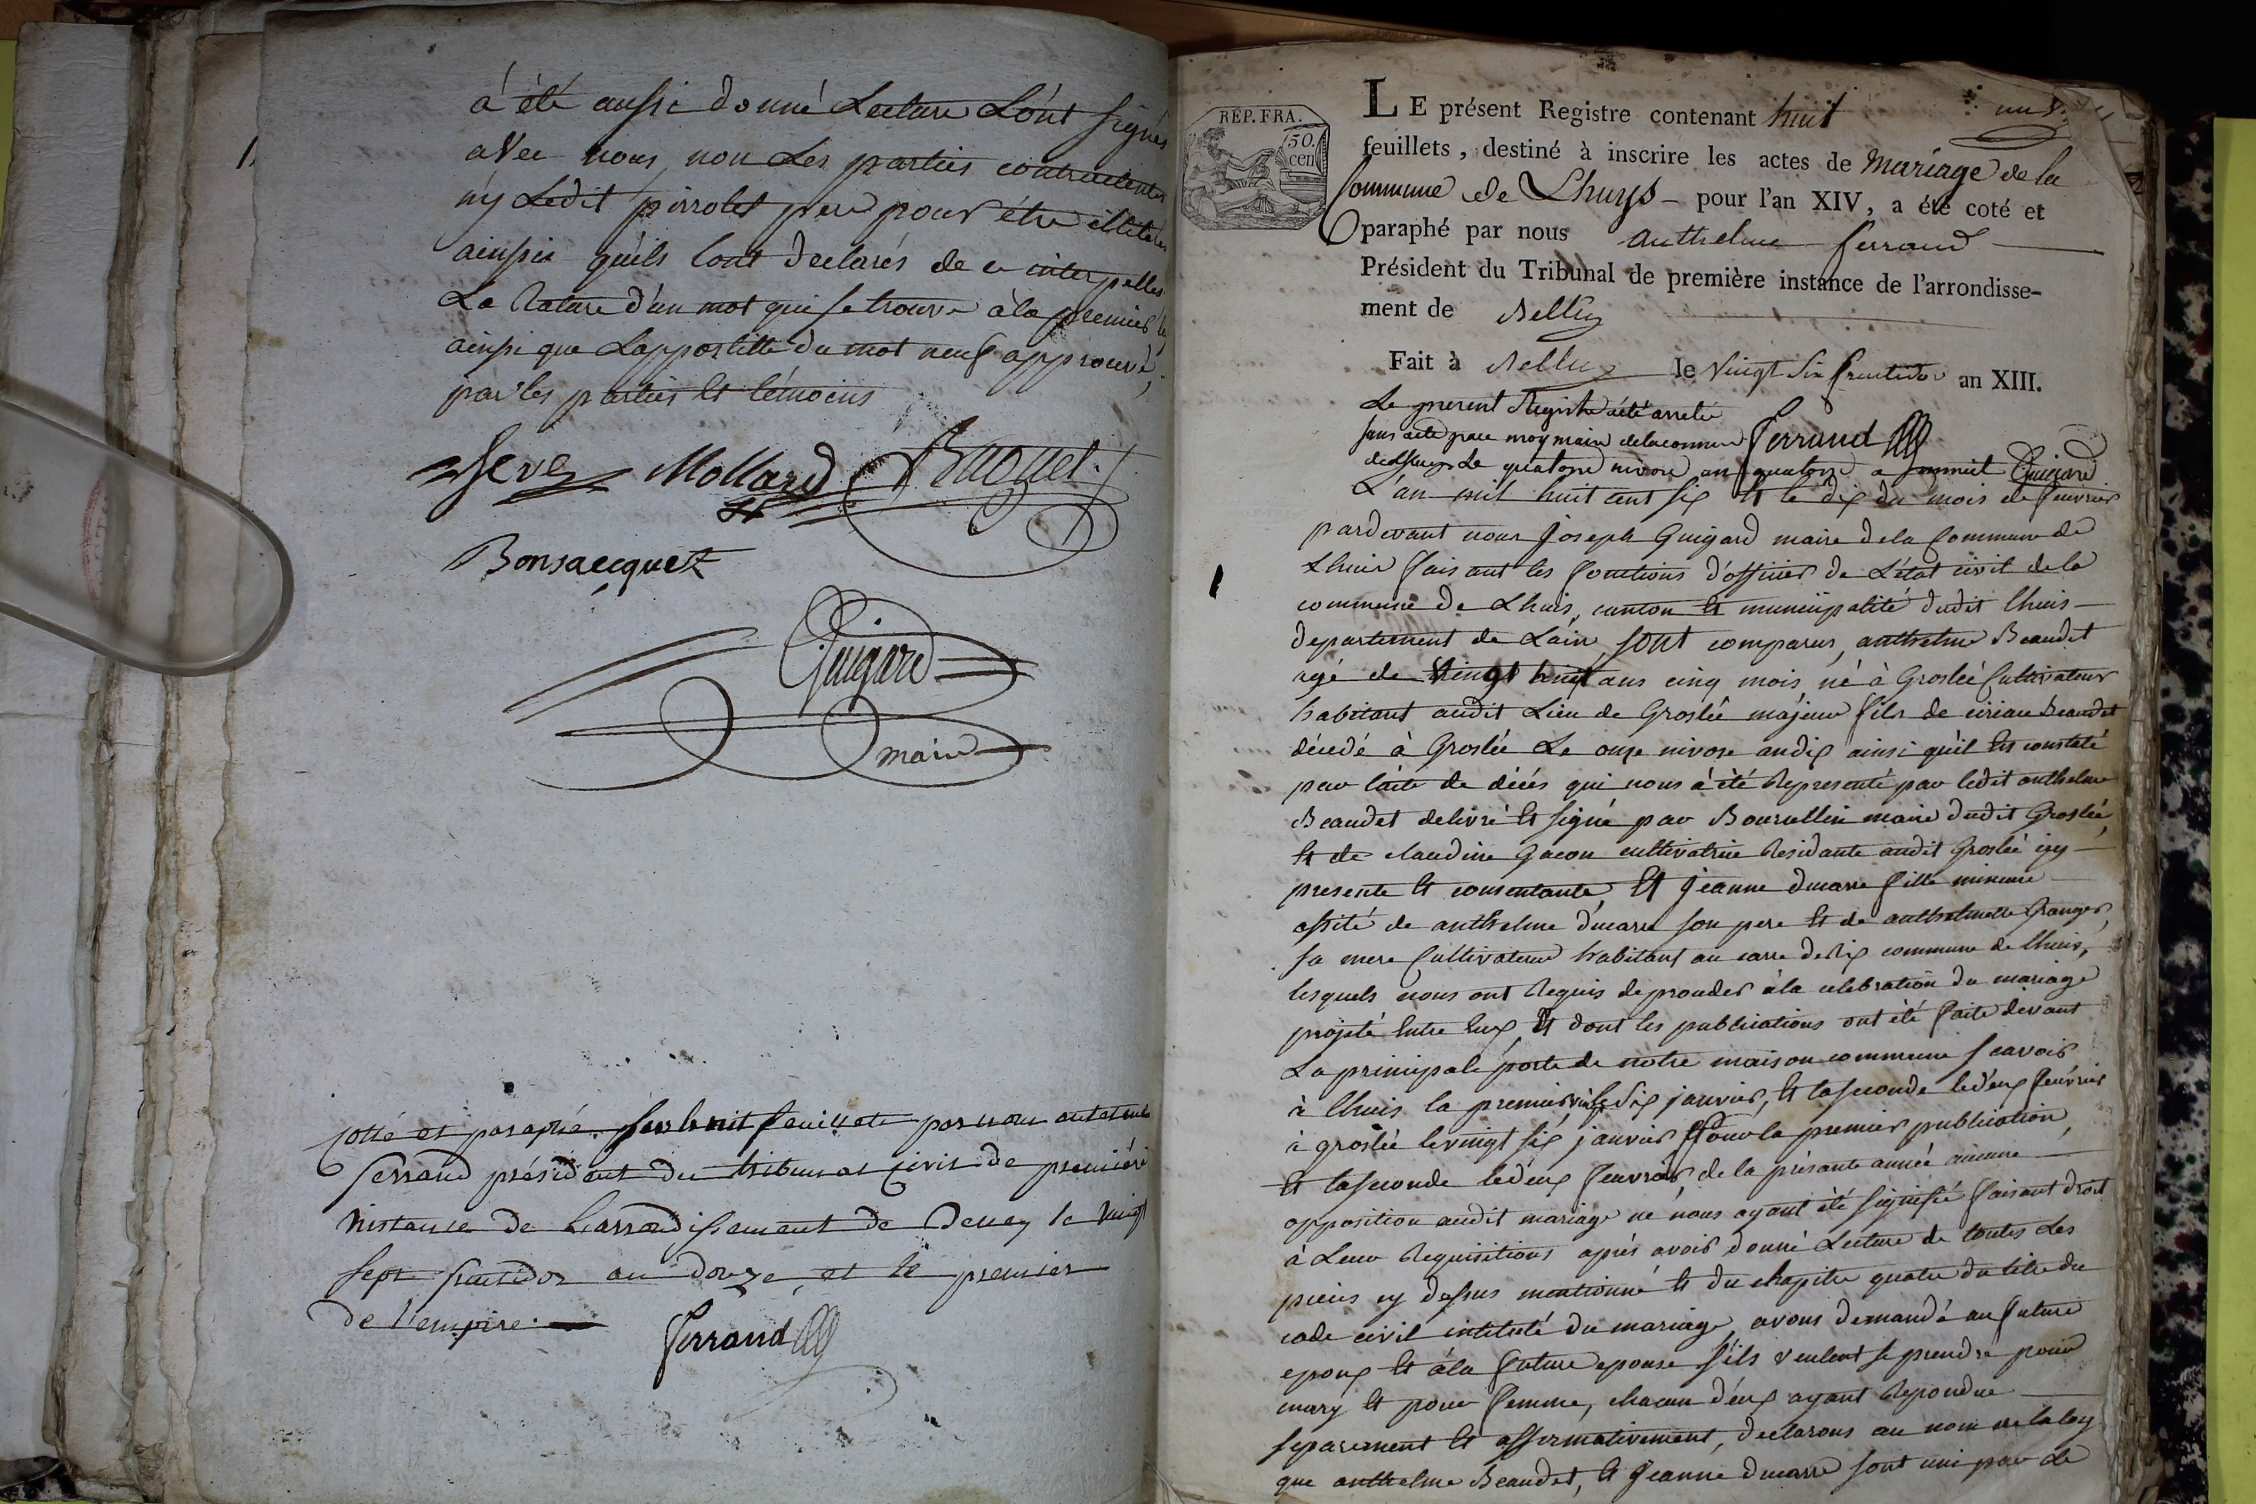 à été aussi donné Lecture L'ont signés
avec nous, non Les parties contractentes
ny Ledit pirrolet pere pour être illiteré
ainsie qu'ils l'ont declarés de ce interpellés.
La Rature d'un mot qui se trouve à la premier
ainsi que L'appostille du mot neuf approuvé,
par les parties Et témoins
Seve Mollard
Bonsaecquet
Guigard
maire
Cotté et paraphé. sur huit feuillets par nous
ferrand président du tribunal Civil de première
instance de L'arrondissement de Belley le vingt
sept fructidor an douze, et le premier
de l'empire.
ferrand
REP. FRA.
50.
cen
LE présent Registre contenant huit
feuillets, destiné à inscrire les actes de Mariage de la
Commune de Lhuys - pour l'an XIV, a été coté et
paraphé par nous Anthelme ferrand
Président du Tribunal de première instance de l'arrondisse-
ment de Belley
Fait à Belley le Vingt Six fructidor an XIII.
Le present Registre a été arretée
sans acte par moy maire de la commune ferrand
de Lhuys Le quatorze nivose an quatorze a Guigard
L'an mil huit cent six Et le dix du mois de feuvrier
pardevant nous Joseph Guigard maire de la Commune de
Lhuis faisant les fonctions d'officier de L'état civil de la
commune de Lhuis, canton Et municipalité dudit lhuis
departement de Lain, sont comparus, anthelme Beaudet
agé de Vingt huit ans cinq mois, né à Groslée Cultivateur
habitant audit Lieu de Groslée majeur fils de Beaudet
décédé à Groslée Le onze nivose an dix ainsi qu'il Est constaté
par l'acte de décés qui nous à été Representé par ledit anthelme
Beaudet delivré Et signé par Bourcellin maire dudit Groslée,
Et de claudine Gacon cultivatrice Residante audit Groslée icy
presente Et consentante, Et Jeanne ducarre fille mineure
assité de anthelme ducarre son pere Et de anthelmette Granger,
sa mere Cultivateur habitant au carre de Rix commune de lhuis,
lesquels nous ont Requis de proceder à la celebration du mariage
projeté Entre Eux, Et dont les publications ont été faite devant
La principale porte de notre maison commune scavoir
à lhuis la premier vingt Six janvier, Et la seconde le deux feuvrier
à groslée le vingt six janvier pour la premier publication,
Et la seconde le deux feuvrier, de la présante année aucune
opposition audit mariage ne nous ayant été signifié faisant droit
à Leur Requisitions aprés avoir donné Lecture de toutes Les
pieces cy dessus mentionné Et du chapitre quatre du titre du
code civil intitulé du mariage, avons demandé au future
epoux Et à la future epouse s'ils veulent se prendre pour
mary Et pour femme, chacun d'eux ayant Repondue
separement Et affirmativement, declarons au nom de la loy
que anthelme Beaudet, Et Jeanne ducarre sont uni par le